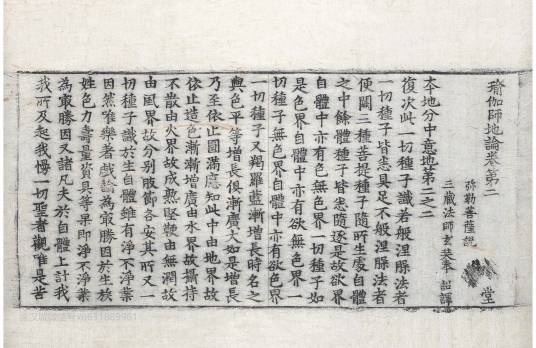 瑜伽師地論卷第二
弥勒菩薩說
三藏法師玄奘奉 詔譯
堂
本地分中意地第二之二
復次此一切種子識若般涅槃法者
一切種子皆悉具足不般涅槃法者
便闕三種菩提種子隨所生處自體
之中餘體種子皆悉隨逐是故欲界
自體中亦有色無色界一切種子如
是色界自體中亦有欲無色界一
切種子無色界自體中亦有欲色界
一切種子又羯羅藍漸增長時名之
與色平等增長俱漸廣大如是增長
乃至依止圓滿應知此中由地界故
依止造色漸漸增廣由水界故攝持
不散由火界故成熟堅鞕由無潤故
由風界故分別肢節各安其所又一
切種子識於生自體雖有淨不淨業
因然唯樂著戲論為冣勝因於生族
姓色力壽量資具等果即淨不淨業
為冣勝因又諸凡夫於自體上計我
我所及起我慢一切聖者觀唯是苦